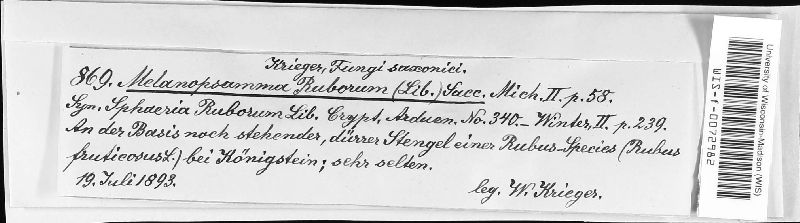 Krieger, Fungi saxonici.
869. Melanopsamma Ruborum (Lib.) Sacc. Mich. II. p. 58.
Syn. Sphaeria Ruborum Lib. Crypt. Arduen. No. 340. – Winter, II. p. 239.
An der Basis noch stehender, dürrer Stengel einer Rubus-Species (Rubus
fruticosus L.) bei Königstein; sehr selten.
19. Juli 1893.
leg. W. Krieger.
University of Wisconsin-Madison (WIS)
WIS-f-0072982